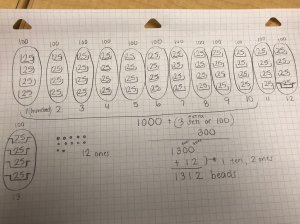 100 100 100 100 100 100 100 100 100 100 100 100
25 25 25 25 25 25 25 25 25 25 25 25
25 25 25 25 25 25 25 25 25 25 25 25
25 25 25 25 25 25 25 25 25 25 25 25
25 25 25 25 25 25 25 25 25 25 25 25
1 (hundred) 2 3 4 5 6 7 8 9 10 11 12
1000 + (3 extra sets or 100)
300
100
25
25
25
25
13
12 ones
1300
+ 12) → 1 ten, 2 ones
1312 beads